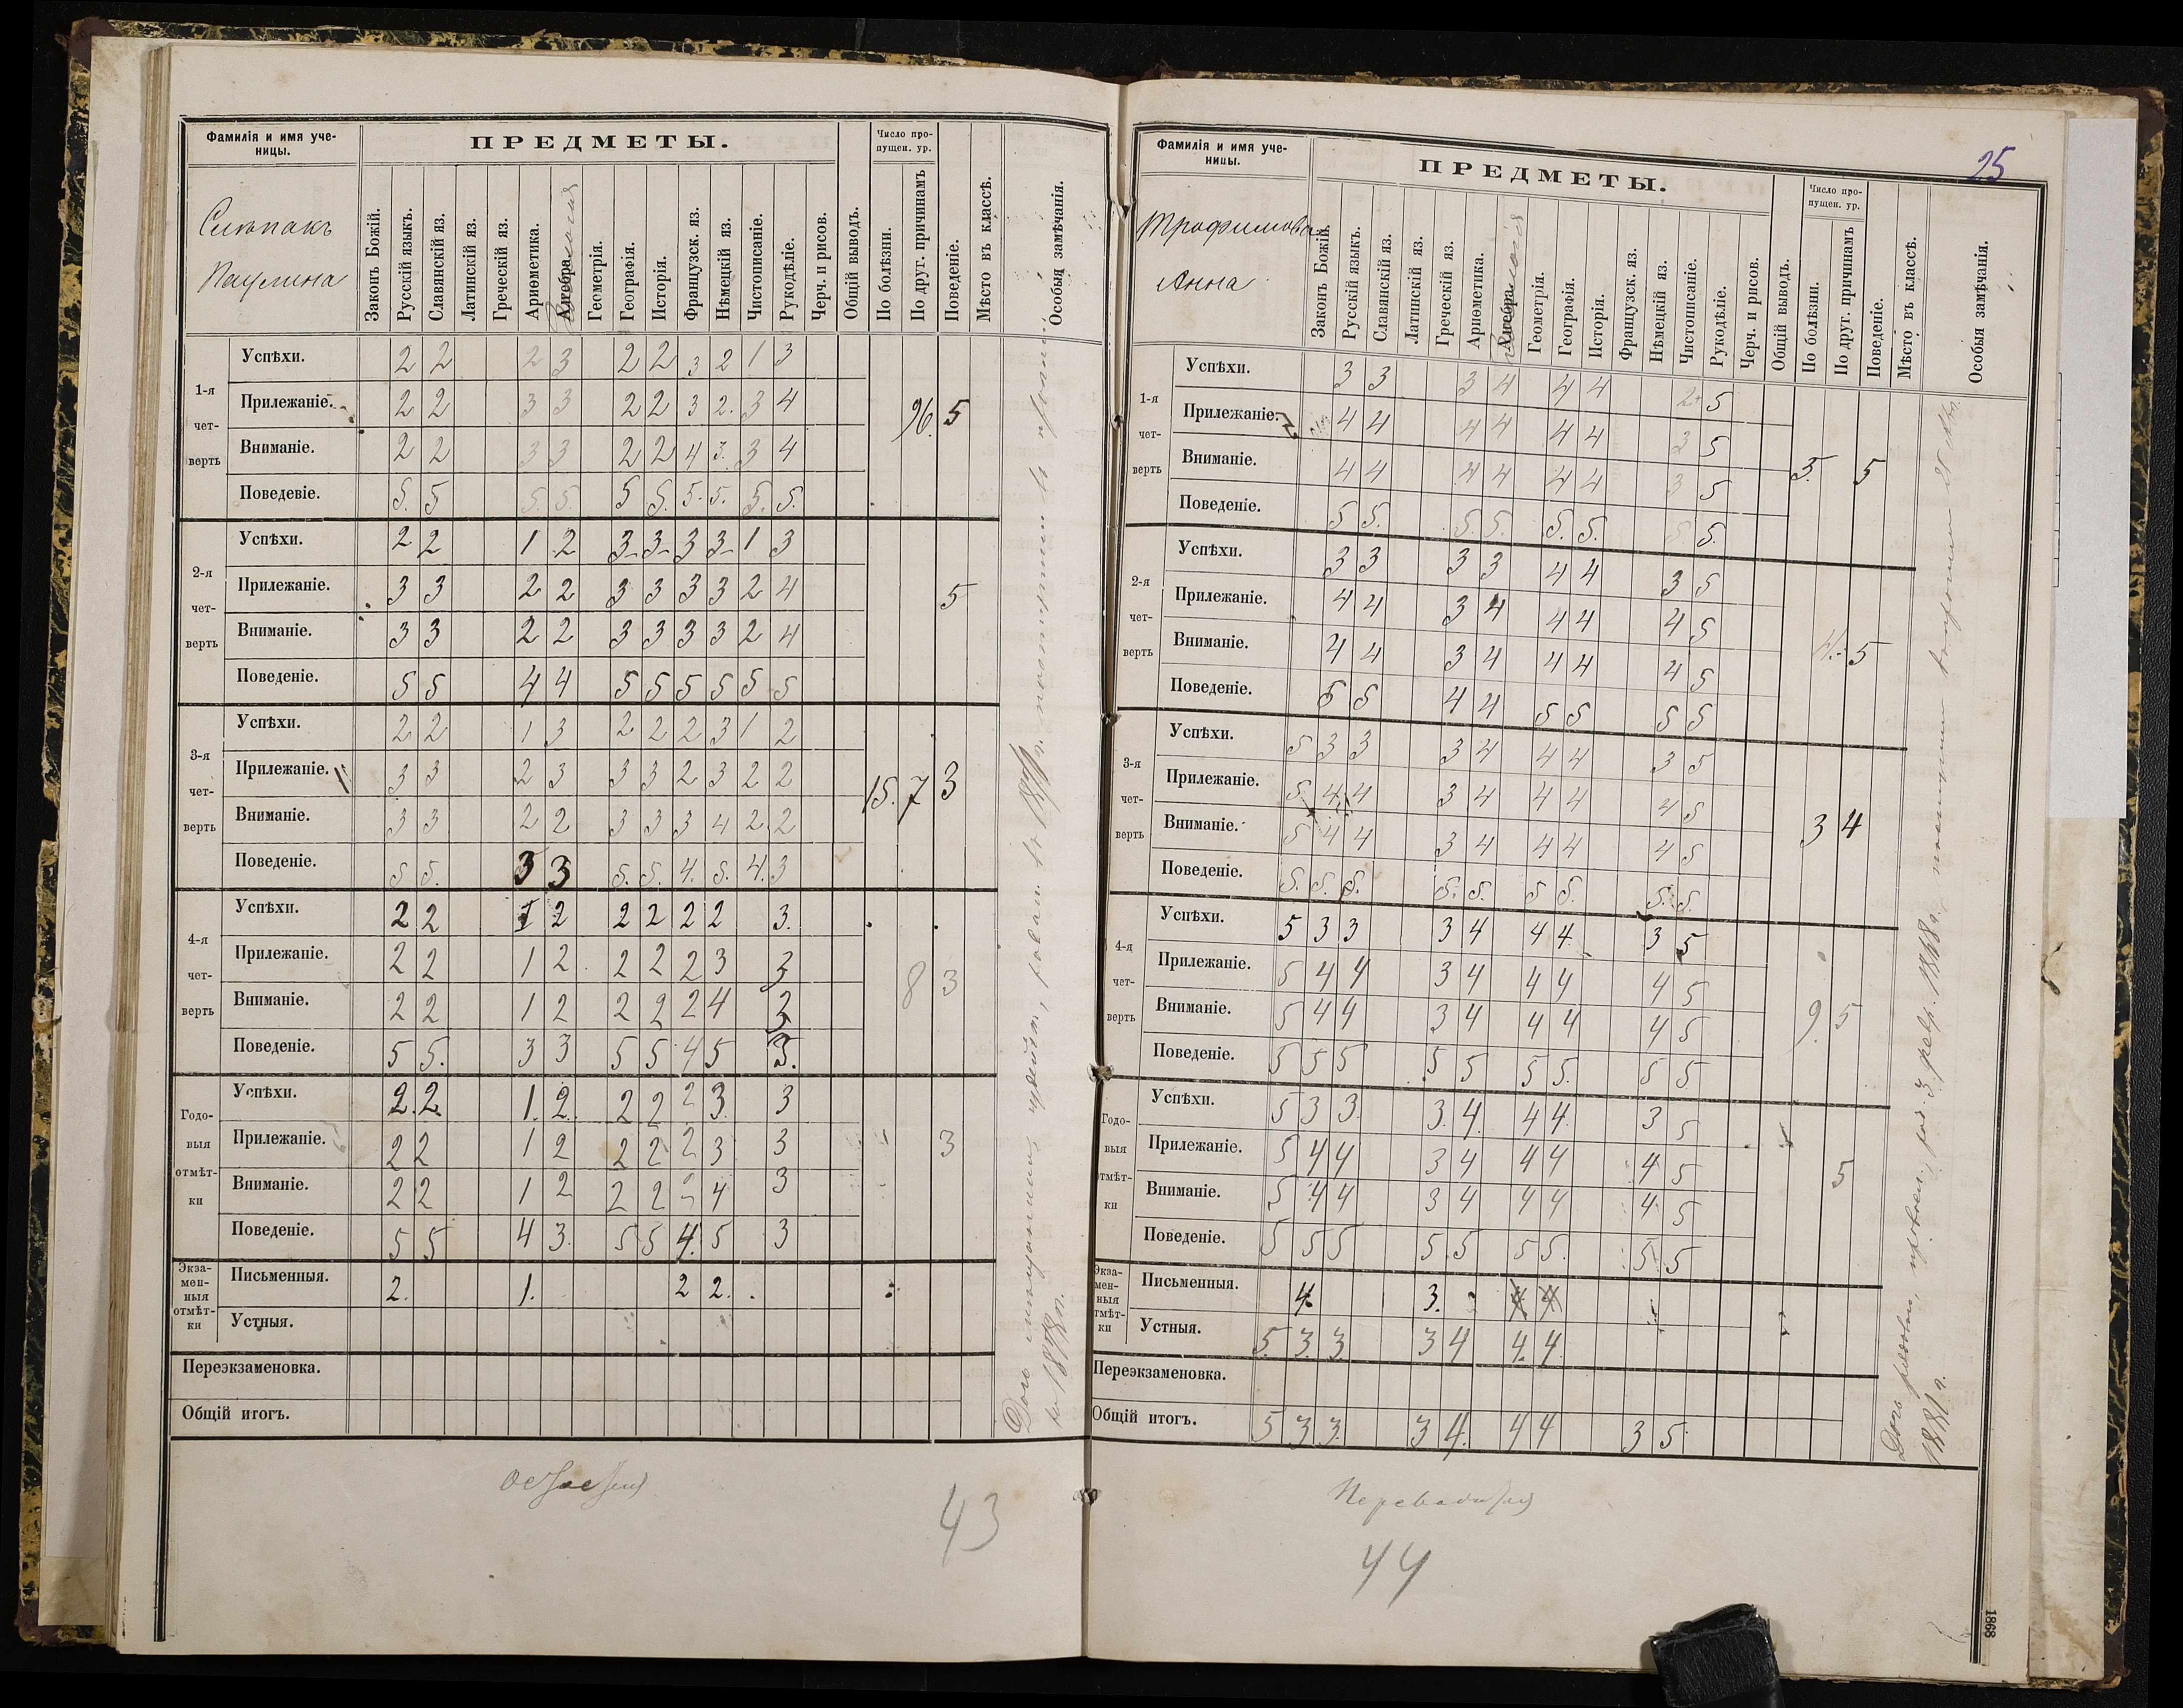 Фамилія и имя уче-
ницы.
ПРЕДМЕТЫ.
Число про-
пущен. ур.
Слѣпакъ
Паулина
Законъ Божій.
Русскій языкъ.
Славянскій яз.
Латинскій яз.
Греческій яз.
Ариѳметика.
Алгебра.
Геометрія.
Географія.
Исторія.
Французск. яз.
Нѣмецкій яз.
Чистописаніе.
Рукодѣліе.
Черч. и рисов.
Общій выводъ.
По болѣзни.
По друг. причинамъ
Поведеніе.
Мѣсто въ классѣ.
Особыя замѣчанія.
1-я
чет-
верть
Успѣхи. 2 2 2 3 2 2 3 2 1 3
Прилежаніе. 2 2 3 3 2 2 3 2. 3 4 96. 5
Вниманіе. 2 2 3 3 2 2 4 3. 3 4
Поведевіе. 5. 5 5. 5. 5 5. 5. 5. 5. 5.
2-я
чет-
верть
Успѣхи. 2 2 1 2 3- 3- 3 3- 1 3
Прилежаніе. 3 3 2 2 3 3 3 3 2 4 5
Вниманіе. 3 3 2 2 3 3 3 3 2 4
Поведеніе. 5 5 4 4 5 5 5 5 5 5
3-я
чет-
верть
Успѣхи. 2 2 1 3 2 2 2 3 1 2
Прилежаніе. 3 3 2 3 3 3 2 3 2 2 15. 7 3
Вниманіе. 3 3 2 2 3 3 3 4 2 2
Поведеніе. 5 5. 3 3 5. 5. 4. 5. 4. 3
4-я
чет-
верть
Успѣхи. 2 2 1 2 2 2 2 2 3.
Прилежаніе. 2 2 1 2 2 2 2 3 3 8 3
Вниманіе. 2 2 1 2 2 2 2 4 3
Поведеніе. 5 5. 3 3 5 5 4 5 3.
Годо-
выя
отмѣт-
ки
Успѣхи. 2. 2. 1. 2. 2 2 2 3. 3
Прилежаніе. 2 2 1 2 2 2 2 3 3 3
Вниманіе. 2 2 1 2 2 2 2 4 3
Поведеніе. 5 5 4 3. 5 5 4. 5 3
Экза-
мен-
ныя
отмѣт-
ки
Письменныя. 2. 1. 2 2.
Устныя.
Переэкзаменовка.
Общій итогъ.
43
Фамилія и имя уче-
ницы.
ПРЕДМЕТЫ.
25
Число про-
пущен. ур.
Трофимова
Анна
Законъ Божій.
Русскій языкъ.
Славянскій яз.
Латинскій яз.
Греческій яз.
Ариѳметика.
Алгебра.
Геометрія.
Географія.
Исторія.
Французск. яз.
Нѣмецкій яз.
Чистописаніе.
Рукодѣліе.
Черч. и рисов.
Общій выводъ.
По болѣзни.
По друг. причинамъ
Поведеніе.
Мѣсто въ классѣ.
Особыя замѣчанія.
1-я
чет-
верть
Успѣхи. 3 3 3 4 4 4 2+ 5
Прилежаніе. 4 4 4 4 4 4 3 5
Вниманіе. 4 4 4 4 4 4 3 5 3. 5
Поведеніе. 5 5. 5. 5. 5. 5. 5 5
2-я
чет-
верть
Успѣхи. 3 3 3 3 4 4 3 5
Прилежаніе. 4 4 3 4 4 4 4 5
Вниманіе. 4 4 3 4 4 4 4 5 4. 5
Поведеніе. 5 5 4 4 5 5 5 5
3-я
чет-
верть
Успѣхи. 5 3 3 3 4 4 4 3 5
Прилежаніе. 5. 4 4 3 4 4 4 4 5
Вниманіе. 5 4 4 3 4 4 4 4 5 3 4
Поведеніе. 5. 5. 5. 5. 5. 5 5. 5. 5.
4-я
чет-
верть
Успѣхи. 5 3 3 3 4 4 4 3 5
Прилежаніе. 5 4 4 3 4 4 4 4 5
Вниманіе. 5 4 4 3 4 4 4 4 5 9. 5
Поведеніе. 5 5 5 5 5 5 5. 5 5
Годо-
выя
отмѣт-
ки
Успѣхи. 5 3 3. 3. 4. 4 4. 3 5
Прилежаніе. 5 4 4 3 4 4 4 4 5 5
Вниманіе. 5 4 4 3 4 4 4 4 5
Поведеніе. 5 5 5 5. 5 5 5. 5. 5
Экза-
мен-
ныя
отмѣт-
ки
Письменныя. 4. 3. 4 4
Устныя. 5. 3. 3. 3 4 4. 4
Переэкзаменовка.
Общій итогъ. 5 3 3. 3 4. 4 4 3 5.
44
1868